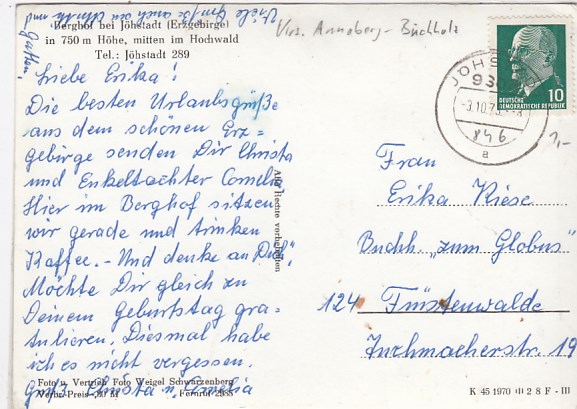 Viele Grüße auch an Ulrich und
Gatten!
Berghof bei Jöhstadt (Erzgebirge)
in 750 m Höhe, mitten im Hochwald
Tel.: Jöhstadt 289
Krs. Annaberg-Buchholz
Liebe Erika!
Die besten Urlaubsgrüße
aus dem schönen Erz-
gebirge senden Dir Christa
und Enkeltochter Cornelia
Hier im Berghof sitzen
wir gerade und trinken
Kaffee. - Und denke an Dich!
Möchte Dir gleich zu
Deinem Geburtstag gra-
tulieren. Diesmal habe
ich es nicht vergessen.
Gruß Christa u. Cornelia
Foto u. Vertrieb Foto Weigel Schwarzenberg
Verbr.-Preis M
Fernruf
Alle Rechte vorbehalten
JÖHS
-3.10.7
a
DEUTSCHE
DEMOKRATISCHE REPUBLIK
10
846
1,-
Frau
Erika Kiese
Buchh. "zum Globus"
124 Fürstenwalde
Tuchmacherstr. 19
K 45 1970 III 2 8 F - III